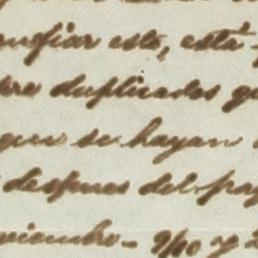 confiar esto, está
bre duplicados q
que se hayan
despues del pag
viembre - 9/10 y 2